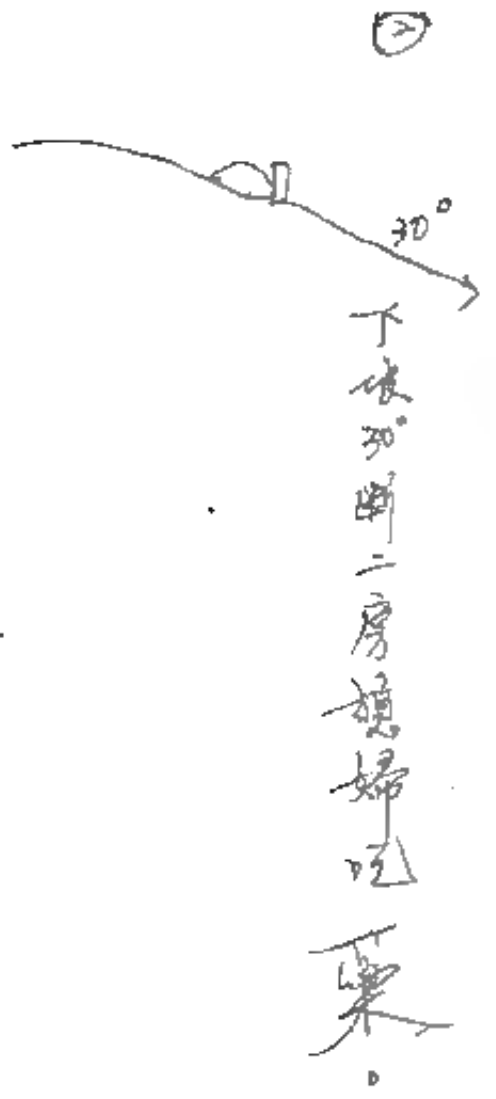 30°
下傾30°斷二房媳婦吃藥。